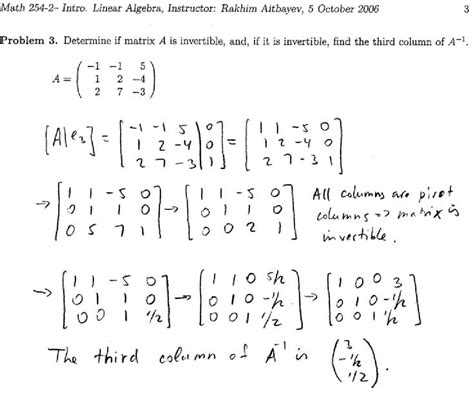 Math 254-2– Intro. Linear Algebra, Instructor: Rakhim Aitbayev, 5 October 2006 3
Problem 3. Determine if matrix A is invertible, and, if it is invertible, find the third column of A⁻¹.
A = ( -1 -1 5
1 2 -4
2 7 -3 )
[A|e₃] = [ -1 -1 5 | 0
1 2 -4 | 0
2 7 -3 | 1 ] = [ 1 1 -5 0
1 2 -4 0
2 7 -3 1 ]
→ [ 1 1 -5 0
0 1 1 0
0 5 7 1 ] → [ 1 1 -5 0
0 1 1 0
0 0 2 1 ]
All columns are pivot
columns => matrix is
invertible.
→ [ 1 1 -5 0
0 1 1 0
0 0 1 1/2 ] → [ 1 1 0 5/2
0 1 0 -1/2
0 0 1 1/2 ] → [ 1 0 0 3
0 1 0 -1/2
0 0 1 1/2 ]
The third column of A⁻¹ is ( 3
-1/2
1/2 ).